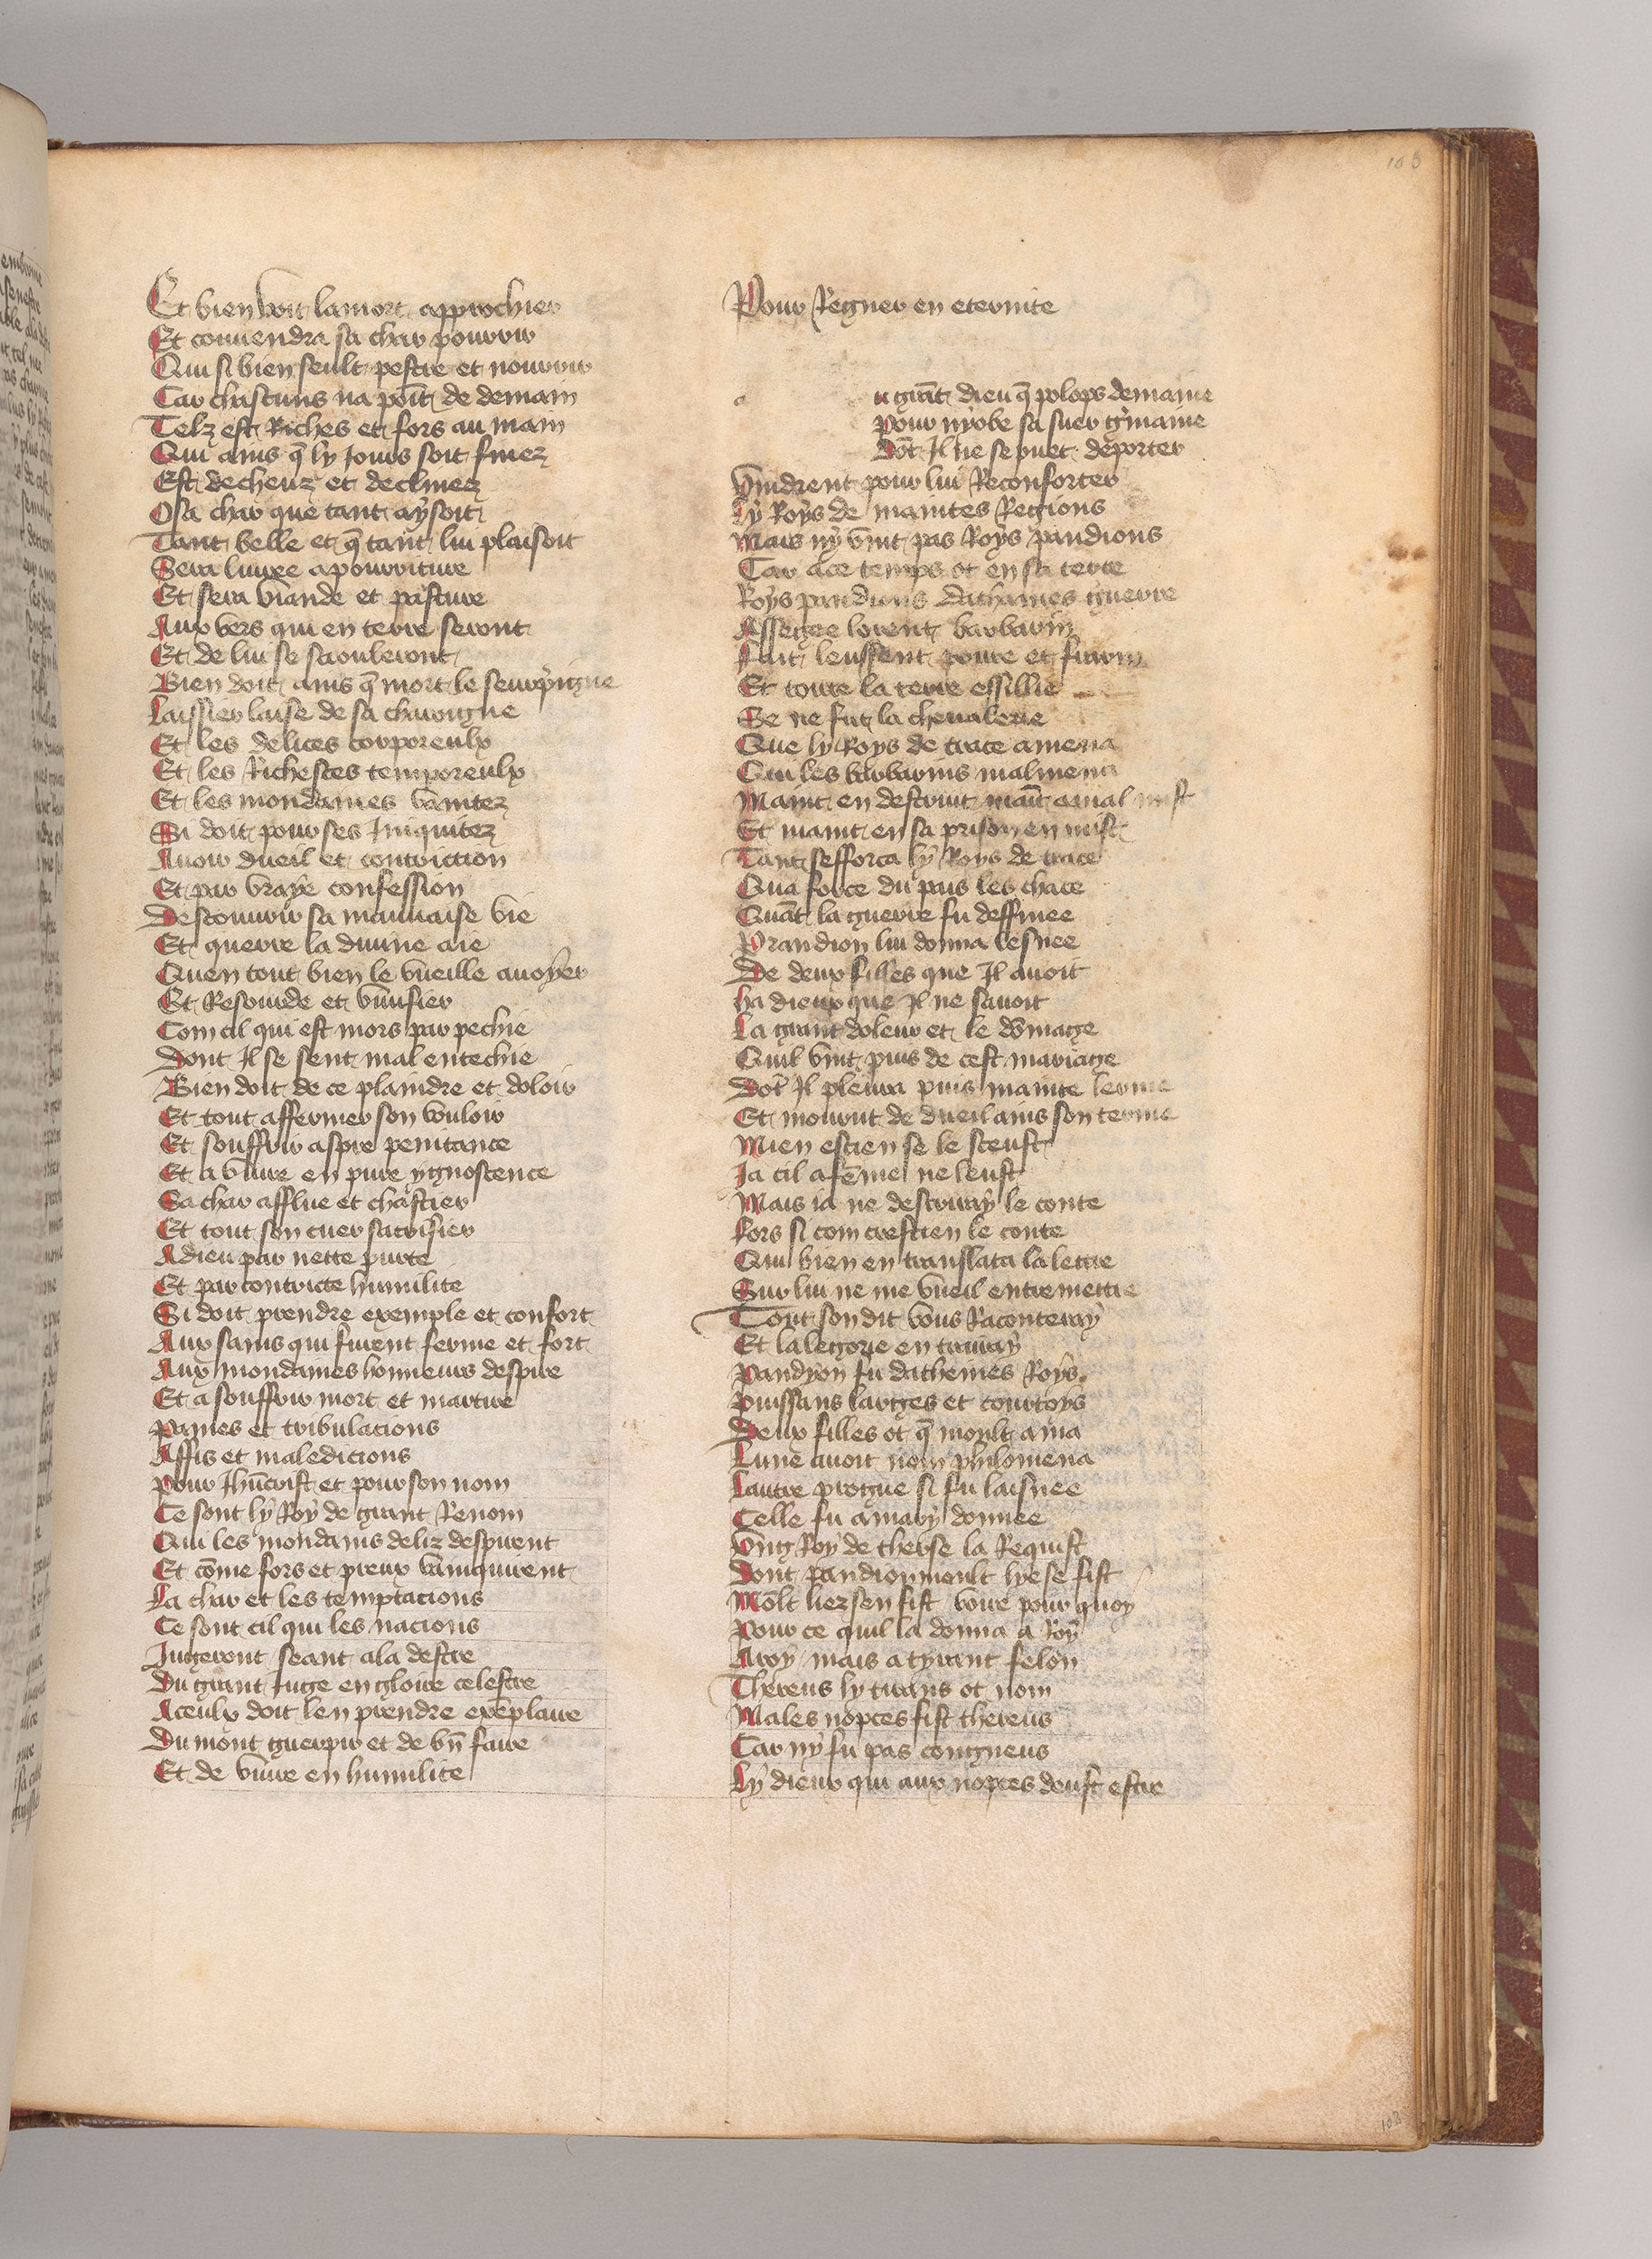 103
Et bien voit la mort approchier
Et convendra sa char pourrir
Qui si bien seult pestre et nourrir
Car chascuns na poīt de demain
Telz est Riches et fors au main
Qui ains q̄ ly Jours soit finez
Est decheuz et declinez
O sa char que tant aysoit
Tant belle et q̄ tant lui plaisoit
Sera livree a pourriture
Et sera viande et pasture
Aux vers qui en terre seront
Et de lui se saouleront
Bien doit ains q̄ mort le seurpreigne
Laissier laise de sa charoigne
Et les delices corporeulx
Et les Richesces temporeulx
Et les mondaines vanitez
Si doit pour ses Iniquitez
Avoir dueil et contriction
Et par vraye confession
Descouvrir sa mauvaise vie
Et querre la divine aie
Quen tout bien le vueille avoyer
Et Resourdre et vivifier
Com cil qui est mors par pechie
Dont Il se sent mal entechie
Bien doit de ce plaindre et doloir
Et tout affermer son vouloir
Et souffrir aspre penitance
Et a vivre en pure ygnoscence
Sa char afflire et chastier
Et tout son cuer sacrifier
A dieu par nette purte
Et par contricte humilite
Si doit prendre exemple et confort
Aux sains qui furent ferme et fort
Aux mondaines honneurs despire
Et a souffrir mort et martire
Paines et tribulacions
Affis et maledicions
Pour Jhūcrist et pour son nom
Ce sont ly Roy de grant Renom
Qui les mondains deliz despirent
Et cōme fors et preux vainquirent
La char et les temptacions
Ce sont cil qui les nacions
Jugeront seant a la destre
Du grant Juge en gloire celestre
A ceulx doit len prendre exēplaire
Du mont guerpir et de bn̄ faire
Et de vivre en humilite
Pour Regner en eternite
a
u grāt dieu q̄ polops demaine
Pour nyobe sa suer gmaine
Dōt Il ne se puet deporter
Vindrent pour lui Reconforter
Ly Roys de maintes Regions
Mais ny vint pas Roys pandions
Car a ce temps ot en sa terre
Roys pandions dathaines guerre
Assegee lorent barbarin
Tait leussent povre et
Et toute la terre essillie
Se ne fut la chevalerie
Que ly Roys de trace amena
Qui les barbarins malmena
Maint en destruit maīt a mal mist
Et maint en sa prison en mist
Tant sefforca ly Roys de trace
Qua force du pais les chace
Quāt la guerre fu deffinee
Prandion lui donna lesnee
De deux filles que Il avoit
Ha dieux que Il ne savoit
La grant doleur et le dōmage
Quil vint puis de cest mariage
Dōt Il pleura puis mainte lerme
Et mourut de dueil ains son terme
Mien escien se le sceust
Ja cil a fēme ne leust
Mais ia ne descriray le conte
Fors si com crestien le conte
Qui bien en translata la lettre
Sur lui ne me vueil entremettre
Tout son dit vous Raconteray
Et lalegorie en trairay
Pandyon fu dathenes Roys
Puissans larges et courtoys
Deux filles ot q̄ moult ama
Lune avoit nom philomena
Lautre progne si fu laisnee
Celle fu a mary donnee
Ung Roy de therse la Requist
Dont pandion moult lye se fist
Mōlt liez sen fist voire pour quoy
Pour ce quil la donna a Roy
A roy mais a tyrant felon
Thereus ly tirans ot nom
Males nopces fist thereus
Car ny fu pas congneus
Ly dieux qui aux nopces deust estre
102